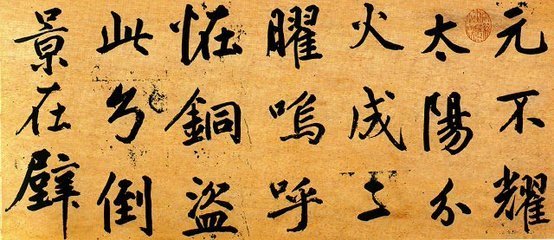 元不耀
太陽分
火成之
曜嗚呼
恠銅盜
此兮倒
景在璧